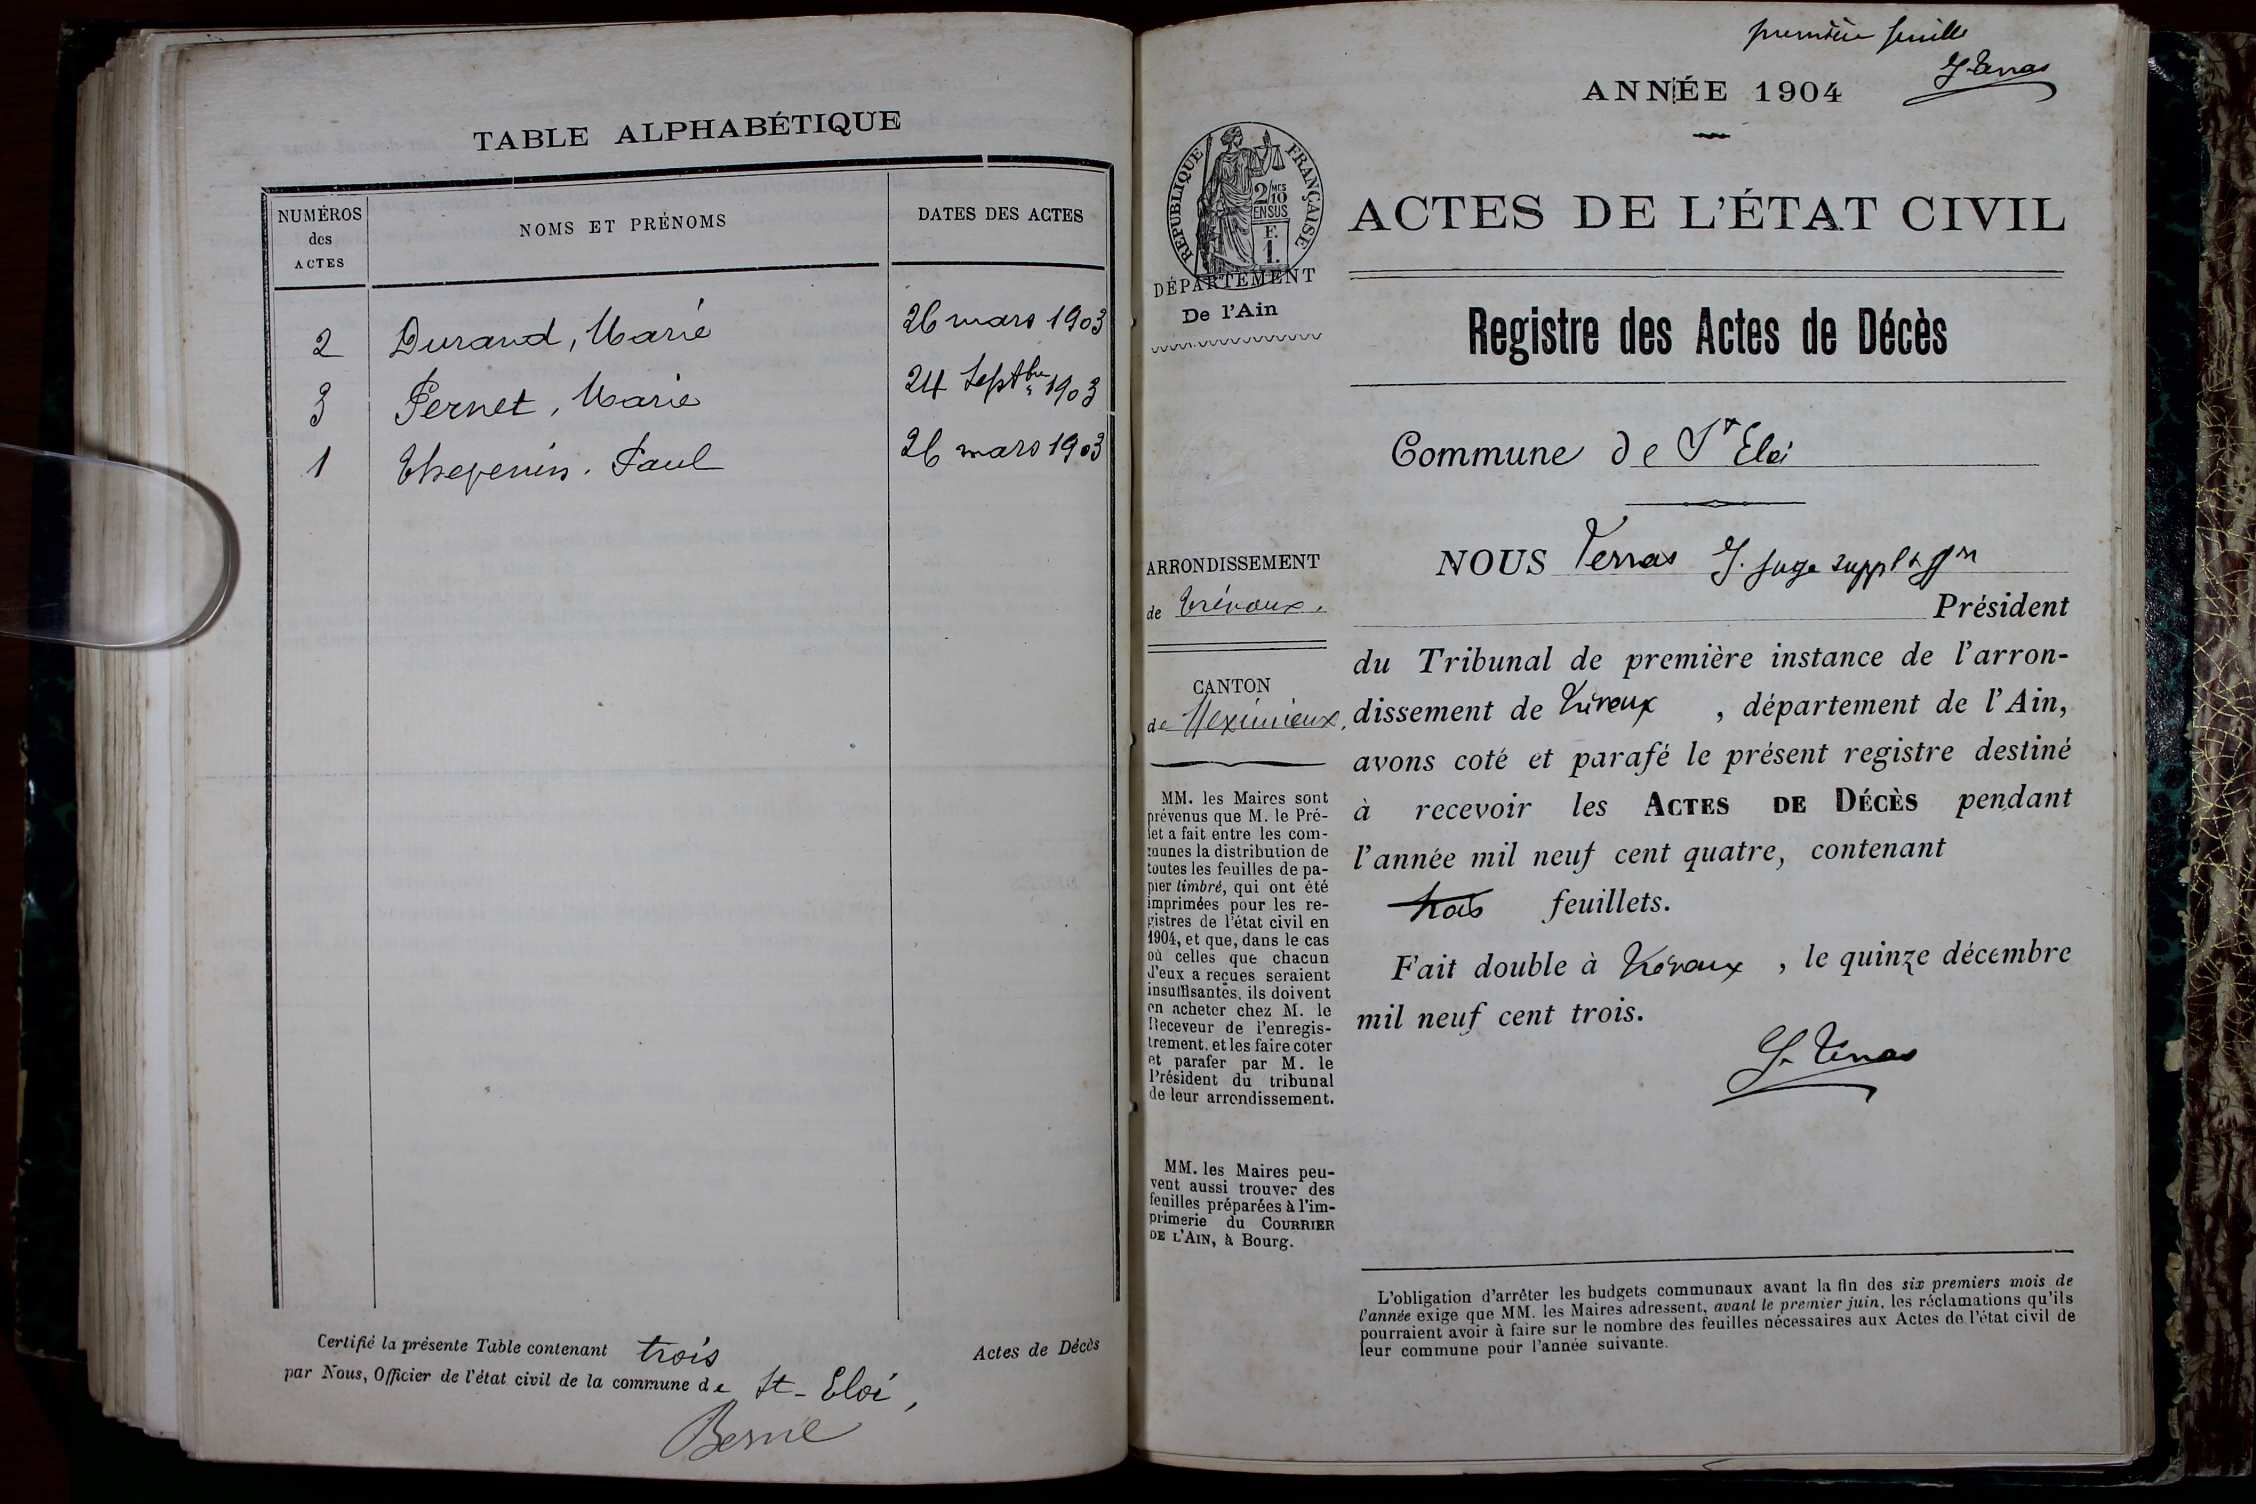 TABLE ALPHABÉTIQUE
NUMÉROS
des
ACTES
NOMS ET PRÉNOMS
DATES DES ACTES
2 Durand, Marie 26 mars 1903
3 Pernet, Marie 24 Septbre 1903
1 Thevenin. Paul 26 mars 1903
Certifié la présente Table contenant trois Actes de Décès
par Nous, Officier de l'état civil de la commune de St-Eloi,
Berne
première feuille
ANNÉE 1904
RÉPUBLIQUE FRANÇAISE
2/MES
10
EN SUS
F.
1.
DÉPARTEMENT
De l'Ain
ARRONDISSEMENT
de Trévoux.
CANTON
de Meximieux.
MM. les Maires sont
prévenus que M. le Pré-
fet a fait entre les com-
munes la distribution de
toutes les feuilles de pa-
pier timbré, qui ont été
imprimées pour les re-
gistres de l'état civil en
1904, et que, dans le cas
où celles que chacun
d'eux a reçues seraient
insuffisantes, ils doivent
en acheter chez M. le
Receveur de l'enregis-
trement, et les faire coter
et parafer par M. le
Président du tribunal
de leur arrondissement.
MM. les Maires peu-
vent aussi trouver des
feuilles préparées à l'im-
primerie du COURRIER
DE L'AIN, à Bourg.
ACTES DE L'ÉTAT CIVIL
Registre des Actes de Décès
Commune de St Eloi
NOUS Juge suppt
Président
du Tribunal de première instance de l'arron-
dissement de Trévoux, département de l'Ain,
avons coté et parafé le présent registre destiné
à recevoir les ACTES DE DÉCÈS pendant
l'année mil neuf cent quatre, contenant
trois feuillets.
Fait double à Trévoux, le quinze décembre
mil neuf cent trois.
L'obligation d'arrêter les budgets communaux avant la fin des six premiers mois de
l'année exige que MM. les Maires adressent, avant le premier juin, les réclamations qu'ils
pourraient avoir à faire sur le nombre des feuilles nécessaires aux Actes de l'état civil de
leur commune pour l'année suivante.